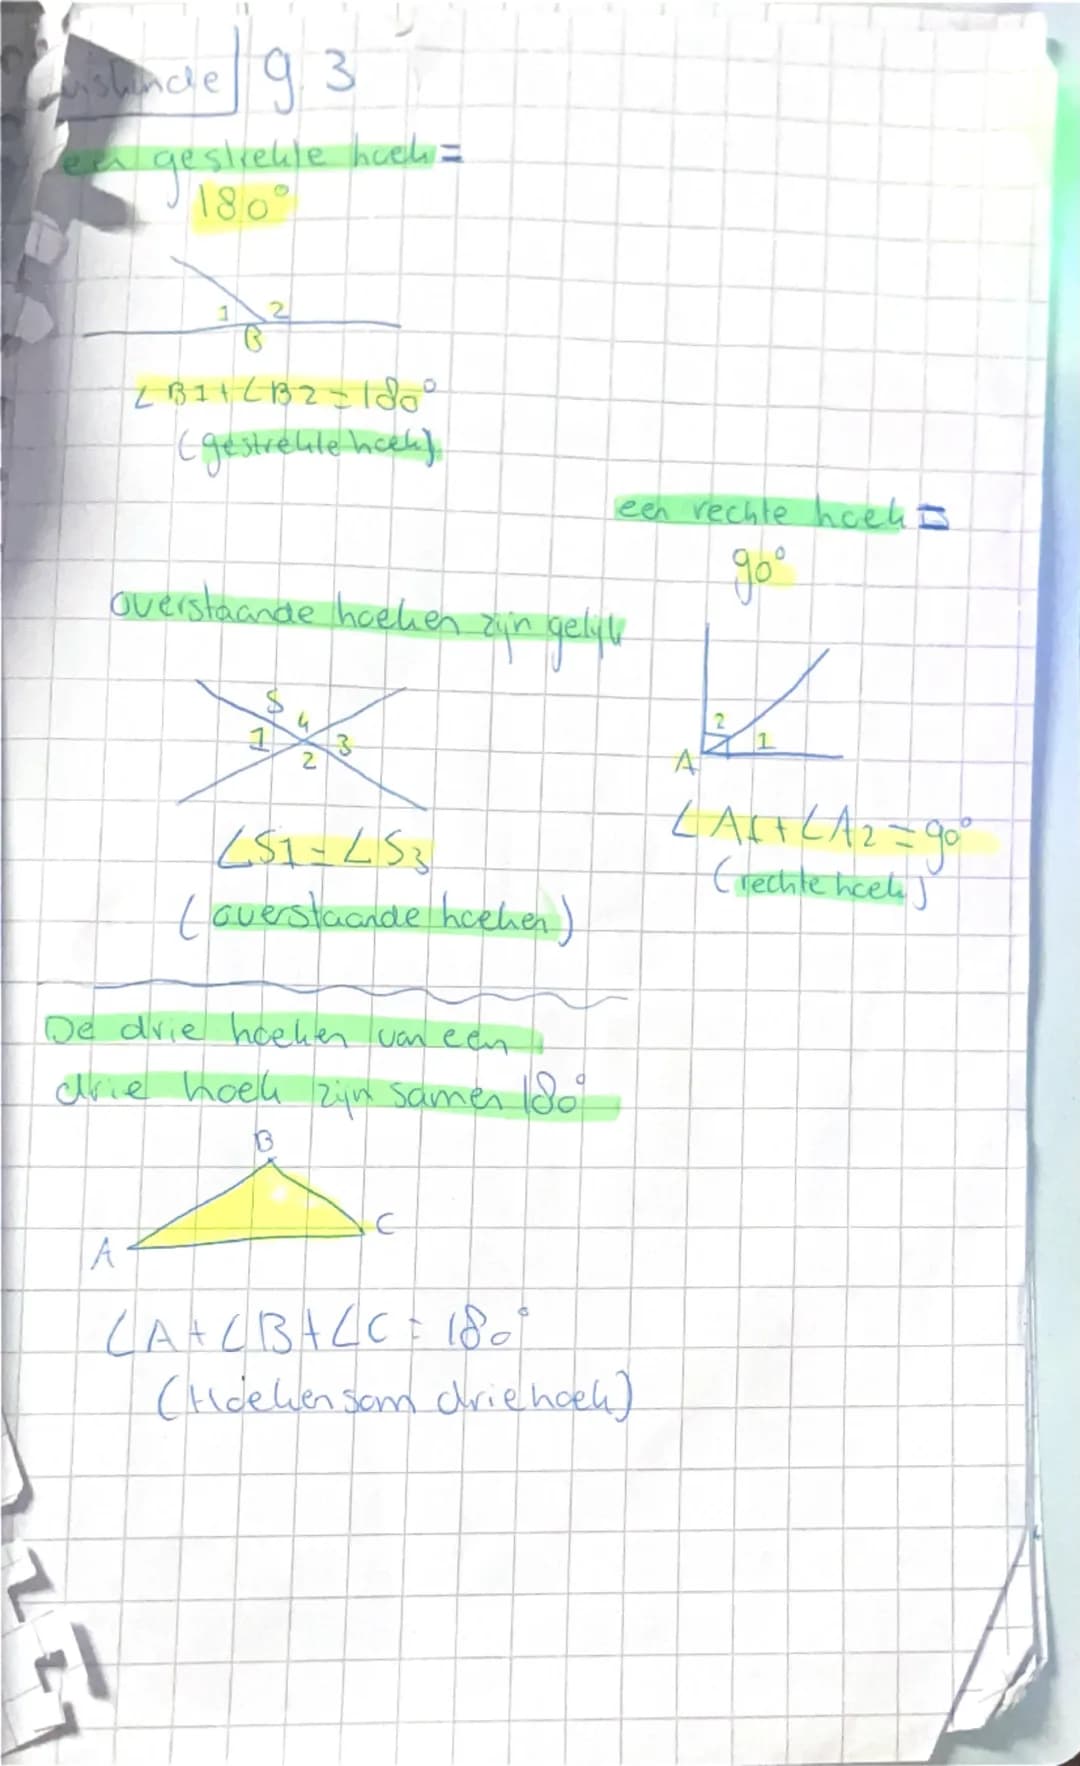 wiskunde 9.3
een gestrekte hoek =
180°
1 2
B
∠B1+∠B2=180°
(gestrekte hoek)
een rechte hoek =
90°
overstaande hoeken zijn gelijk
S
4
1 3
2
2
1
A
∠S1=∠S3
(overstaande hoeken)
∠A1+∠A2=90°
(rechte hoek)
De drie hoeken van een
drie hoek zijn samen 180°
B
C
A
∠A+∠B+∠C=180°
(Hoekensom driehoek)